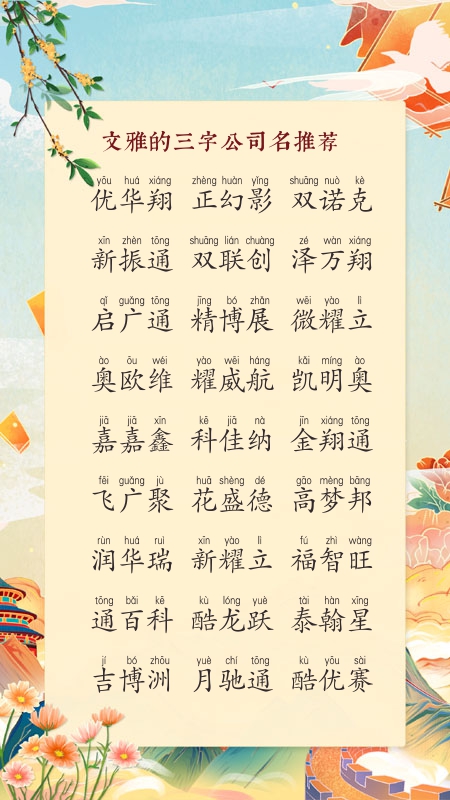 文雅的三字公司名推荐
yōu huá xiáng zhèng huàn yǐng shuāng nuò kè
优华翔 正幻影 双诺克
xīn zhèn tōng shuāng lián chuàng zé wàn xiáng
新振通 双联创 泽万翔
qǐ guǎng tōng jīng bó zhǎn wēi yào lì
启广通 精博展 微耀立
ào ōu wéi yào wēi háng kǎi míng ào
奥欧维 耀威航 凯明奥
jiā jiā xīn kē jiā nà jīn xiáng tōng
嘉嘉鑫 科佳纳 金翔通
fēi guǎng jù huā shèng dé gāo mèng bāng
飞广聚 花盛德 高梦邦
rùn huá ruì xīn yào lì fú zhì wàng
润华瑞 新耀立 福智旺
tōng bǎi kē kù lóng yuè tài hàn xīng
通百科 酷龙跃 泰翰星
jí bó zhōu yuè chí tōng kù yōu sài
吉博洲 月驰通 酷优赛